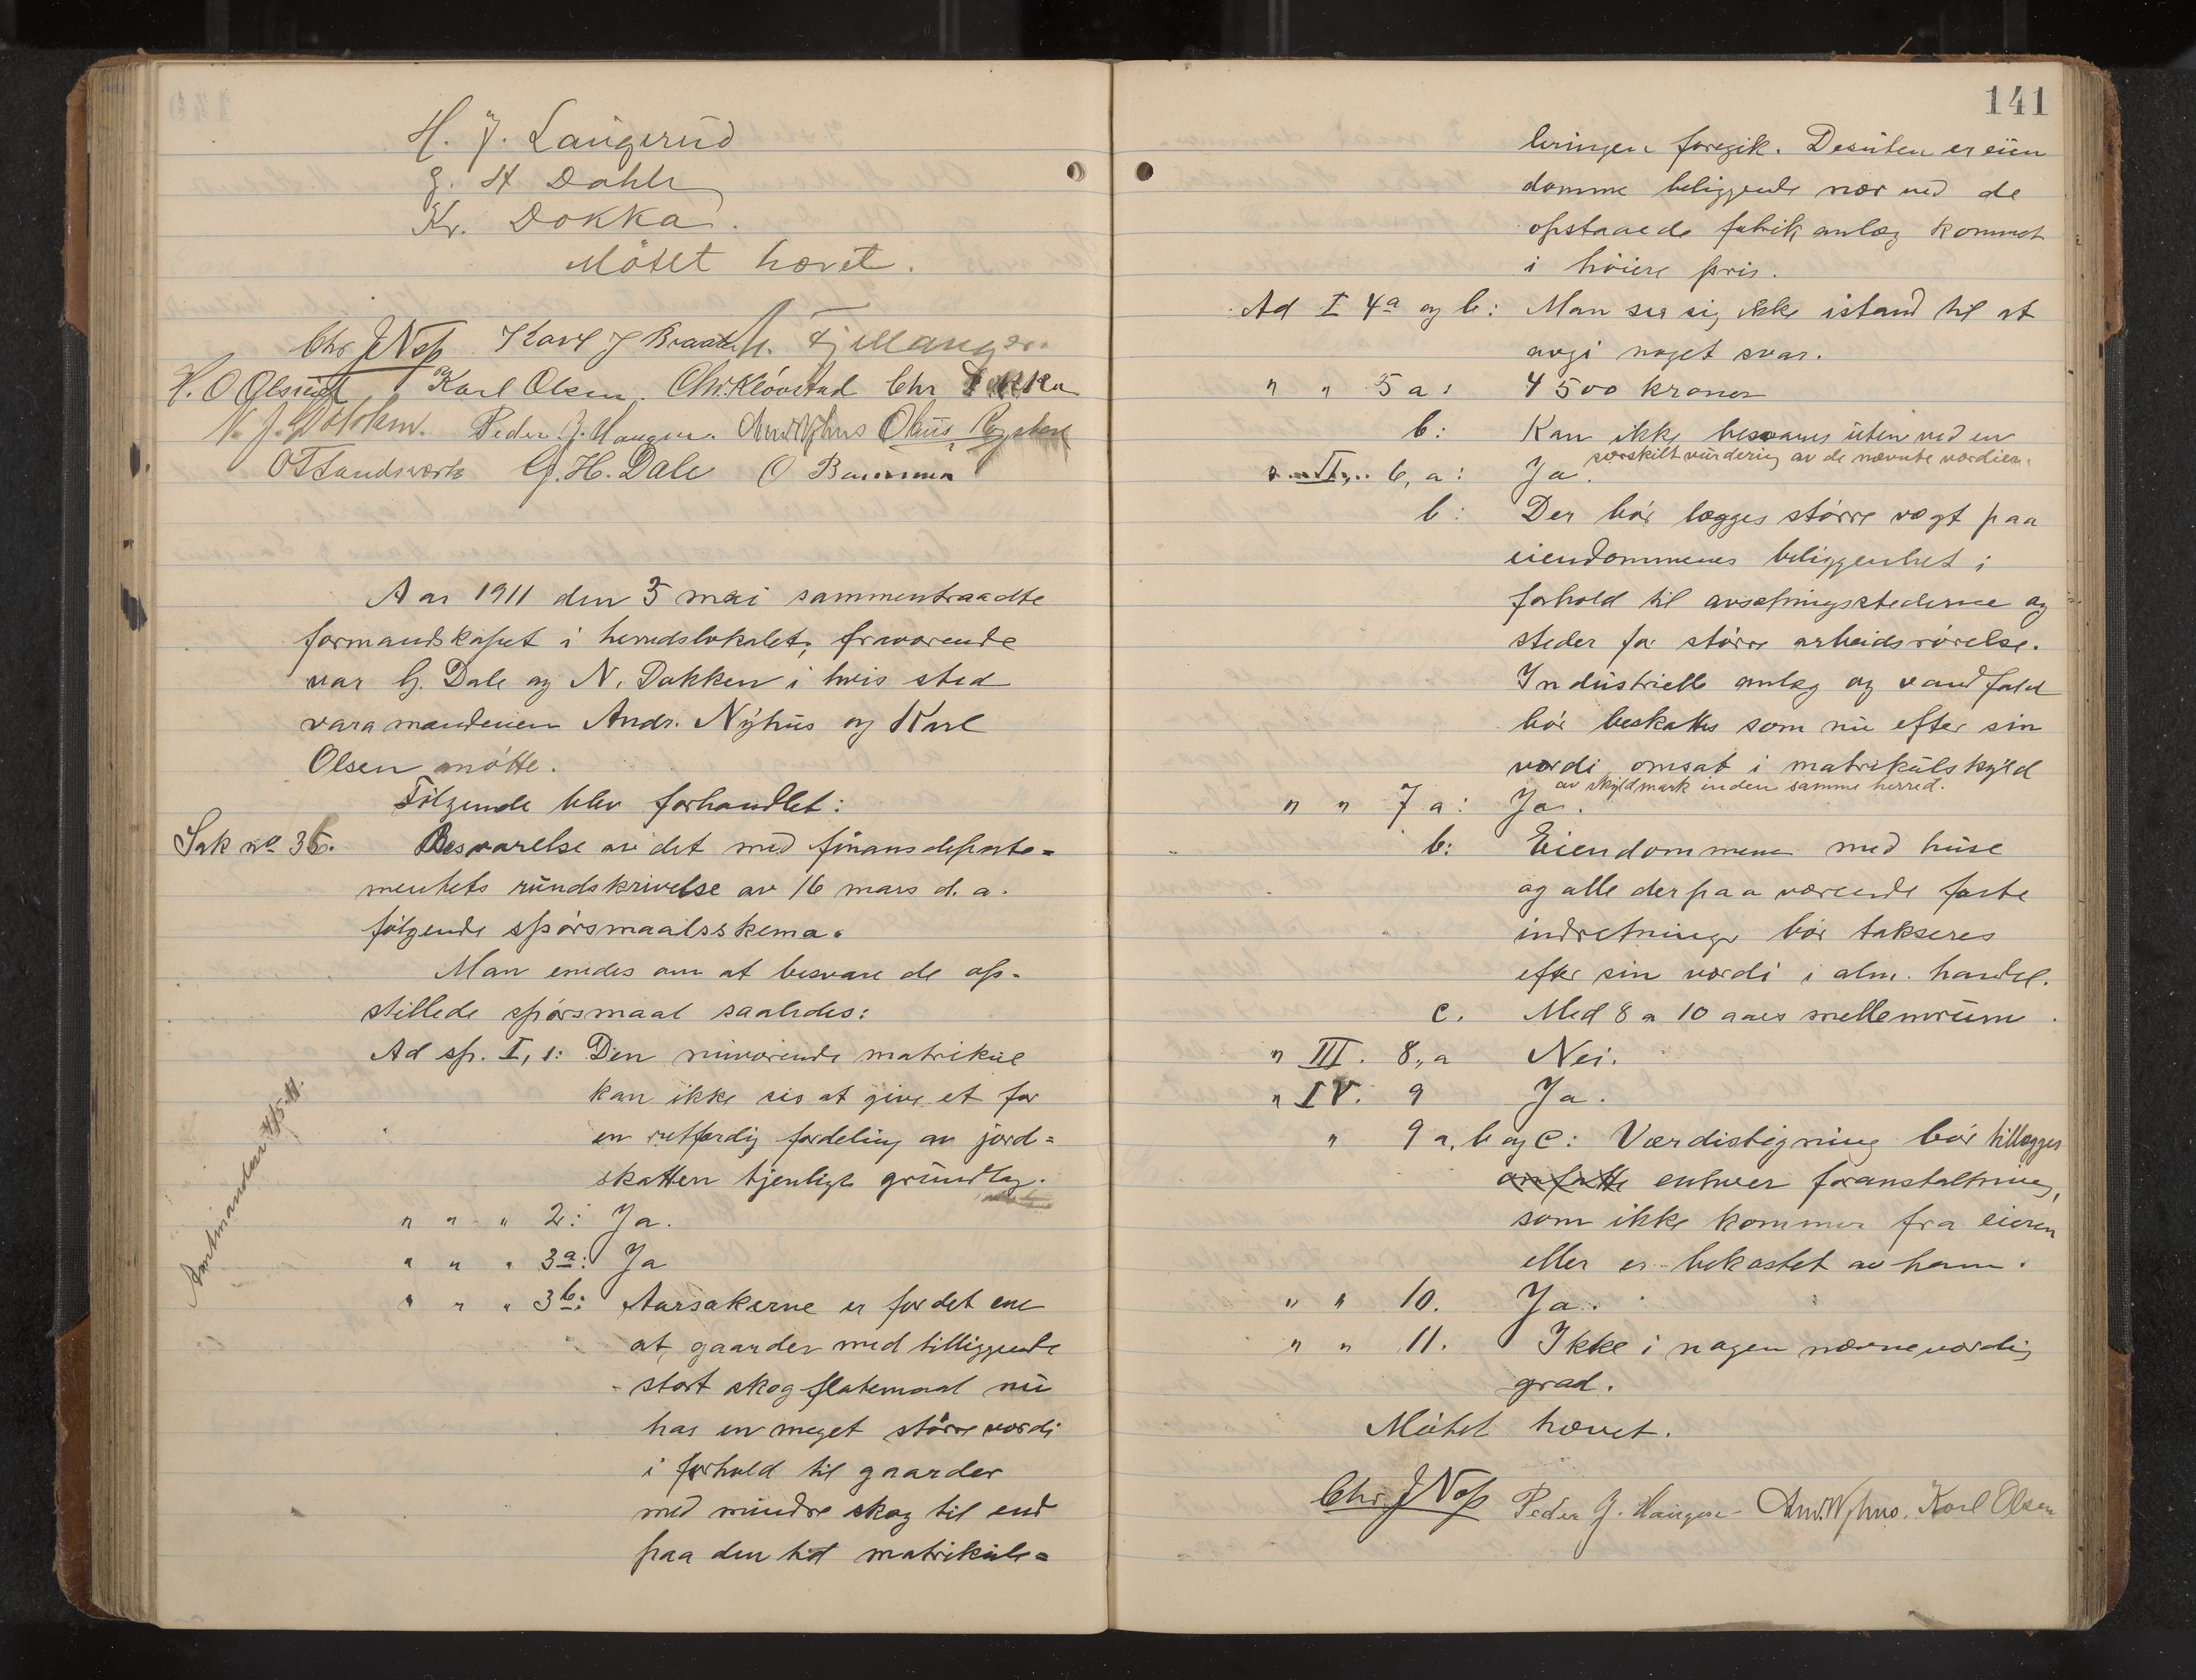 H. J. Laugerud
G. H Dahle
Kr. Dokka.
Møtet hævet.
Chr J Nop Karl J Braata H. Fjellanger.
H. O Olsrud Karl Olsen. Chr. Kløvstad Chr
Peder J. Haugen. And Nyhus Olaus
O T Landsværk G. H. Dale O
Aar 1911 den 3 mai sammentraadte
formandskapet i herredslokalet, fraværende
var G. Dale og N. Dokken i hvis sted
varamændenen Andr. Nÿhus og Karl
Olsen møtte.
Følgende blev forhandlet:
Sak no 35. Besvarelse av det med finansdeparte=
mentets rundskrivelse av 16 mars d. a.
følgende spørsmaalsskema.
Man enedes om at besvare de op-
stillede spørsmaal saaledes:
Ad sp. I, 1: Den nuværende matrikul
kan ikke sies at give et for
en retfærdig fordeling av jord=
skatten tjenligt grundlag.
" " " 2: Ja.
" " " 3a: Ja
" " " 3b: Aarsakerne er for det ene
at, gaarder med tilliggende
stort skog-flatemaal nu
har en meget større værdi
i forhold til gaarder
med mindre skog til end
paa den tid matrikule=
Amtmanden 4/5-11.
141
leringen foregik. Desuten er eien
domme beliggende nær ved de
opstaaede fabrikanlæg kommet
i høiere pris.
Ad I 4a og b: Man ser sig ikke istand til at
avgi noget svar.
" " 5 a: 4500 kroner
b: Kan ikke besvares uten ved en
særskilt vurdering av de nævnte værdier.
" II, 6, a: Ja.
b: Der bør lægges større vegt paa
eiendommenes beliggenhet i
forhold til avsetningsstederne og
steder for større arbeidsrørelse.
Industrielle anlæg og vandfald
bør beskattes som nu efter sin
værdi omsat i matrikulskyld
av skyldmark inden samme herred.
" " 7 a: Ja.
b: Eiendommene med huse
og alle derpaa værende faste
indretninger bør takseres
efter sin værdi i alm. handel.
c. Med 8 a 10 aars mellemrum.
" III. 8, a Nei.
" IV. 9 Ja.
" 9 a, b og c: Værdistigning bør tillægges
omfatte enhver foranstaltning,
som ikke kommer fra eieren
eller er bekostet av ham.
" " 10. Ja.
" " 11. Ikke i nogen nævneværdig
grad.
Møtet hævet.
Chr. J Nop Peder J. Haugen And. Nyhus. Karl Olsen